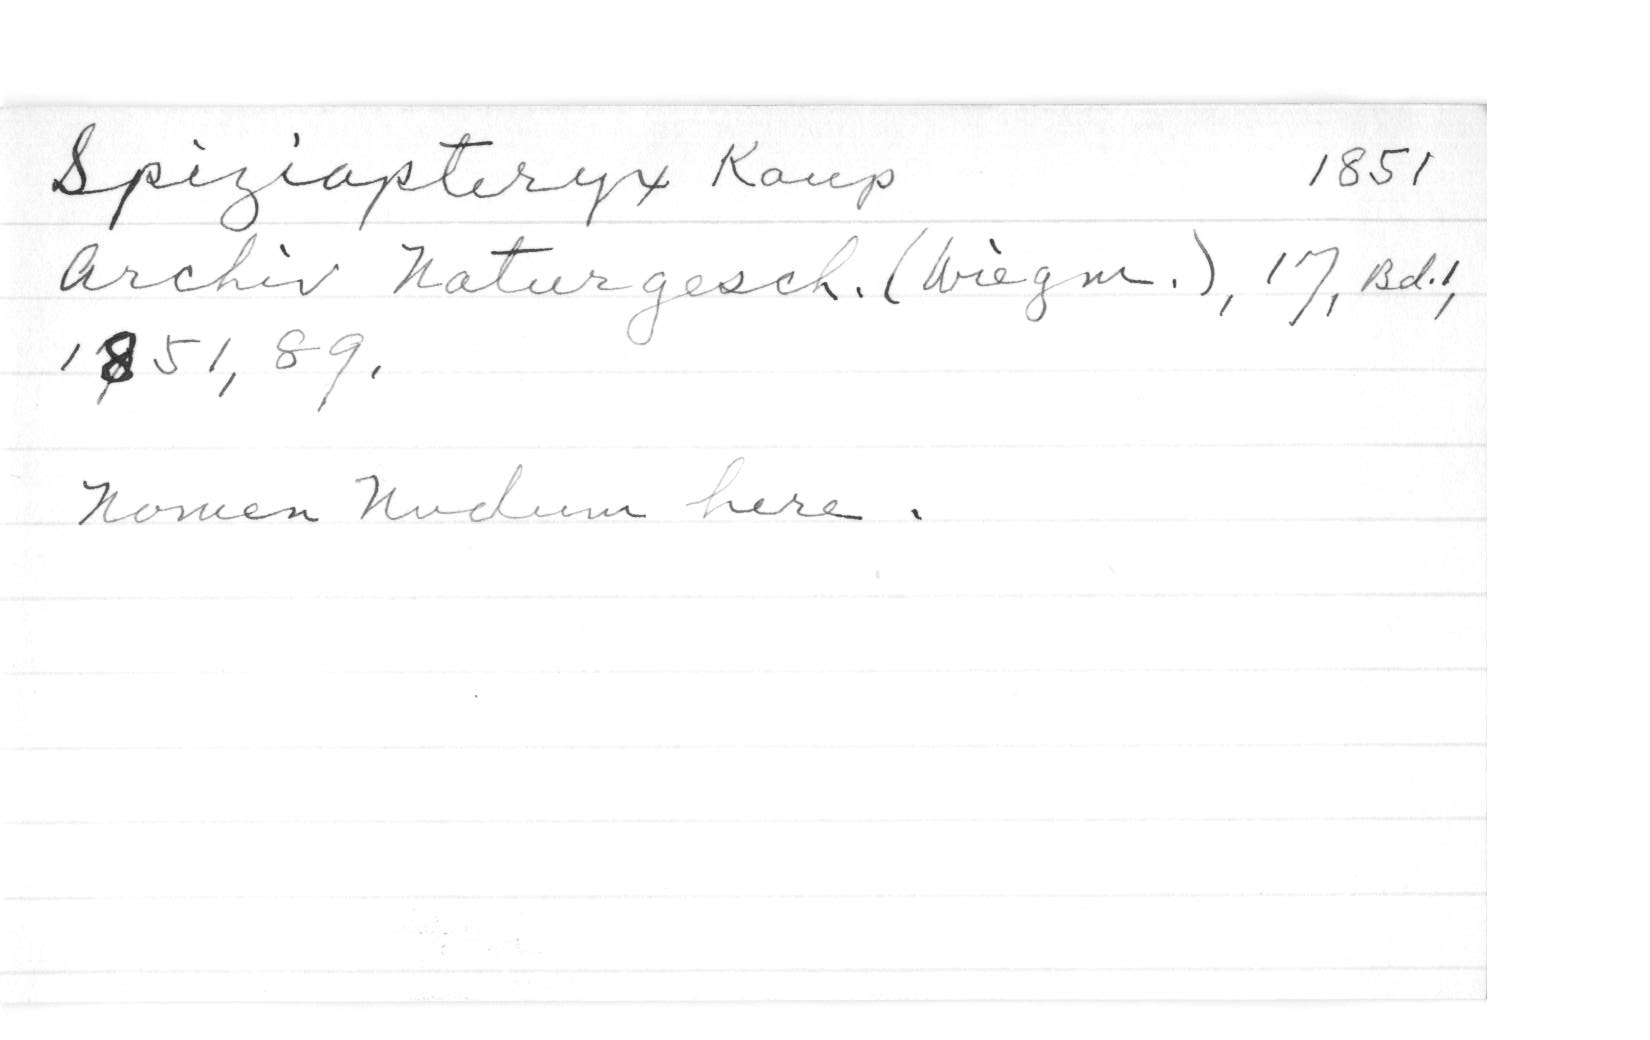 Spiziapteryx Kaup 1851
Archiv Naturgesch. (Wiegm.), 17, Bd.1,
1851, 89.
Nomen Nudum here.